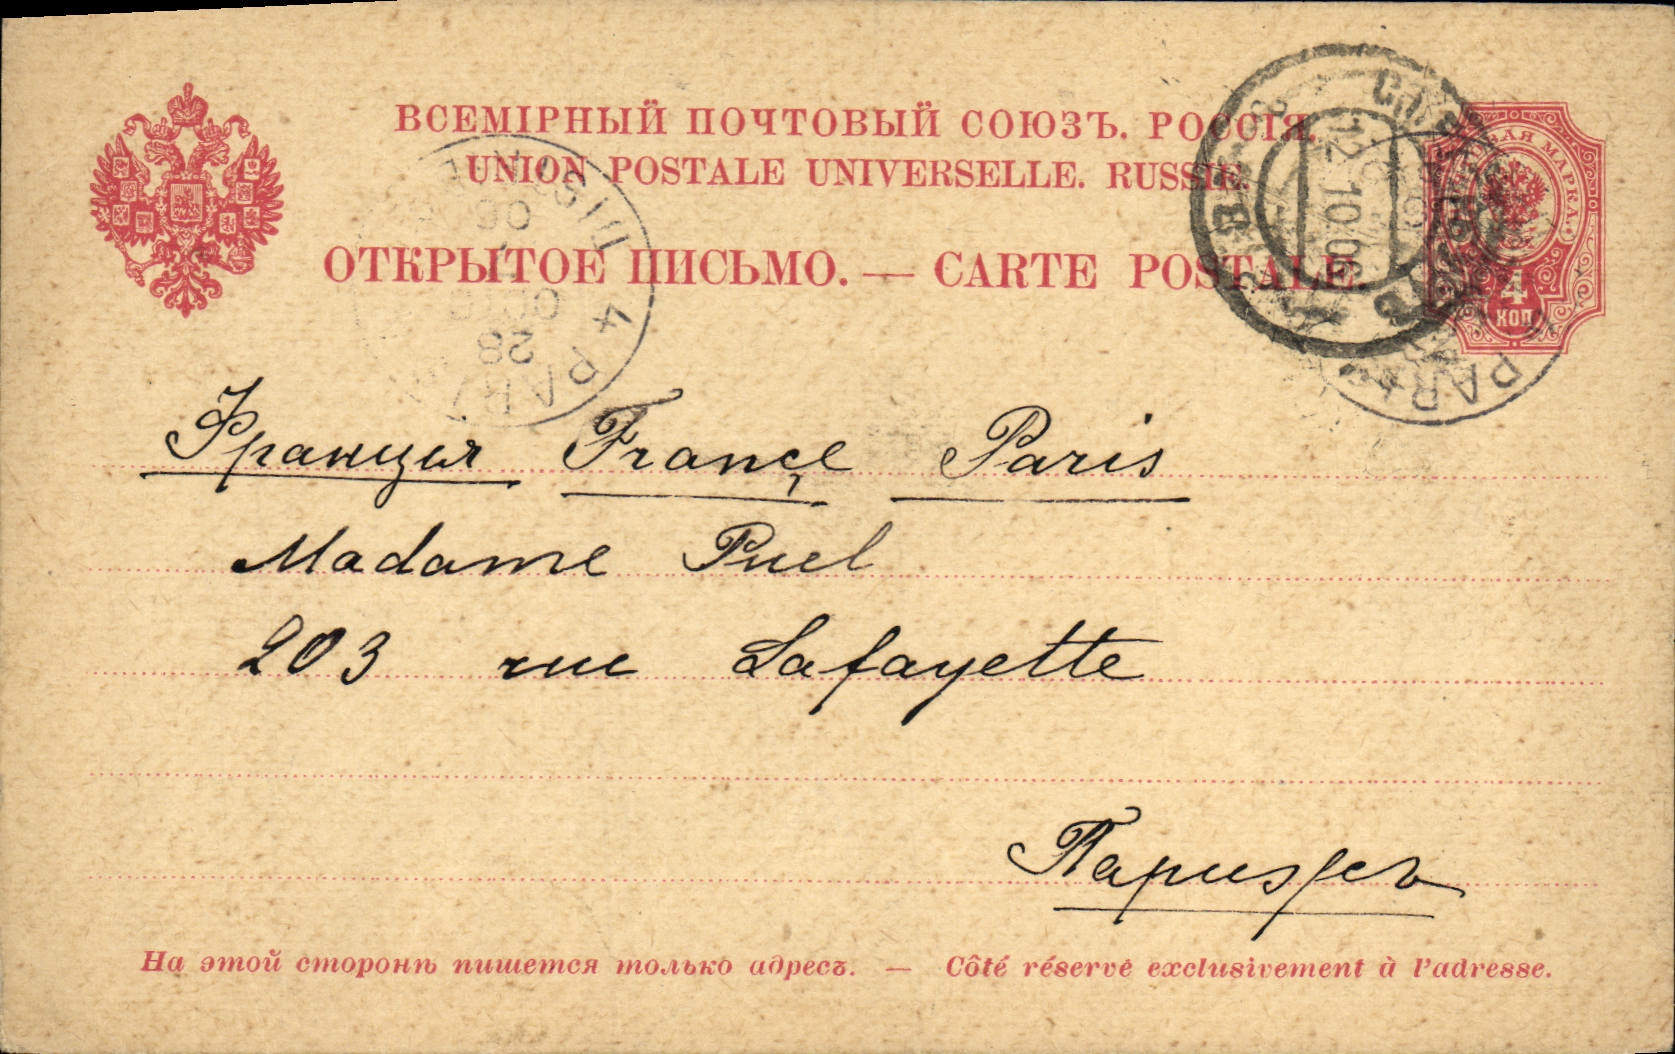 ВСЕМІРНЫЙ ПОЧТОВЫЙ СОЮЗЪ. РОССІЯ.
UNION POSTALE UNIVERSELLE. RUSSIE.
ОТКРЫТОЕ ПИСЬМО. — CARTE POSTALE.
МАРКА.
4
КОП
12.10.06
PARIS
DISTRIB
06
28
4 PARIS
Франція Françe Paris
Madame Puel
203 rue Lafayette
Парижъ
На этой сторонѣ пишется только адресъ. — Côté réservé exclusivement à l'adresse.